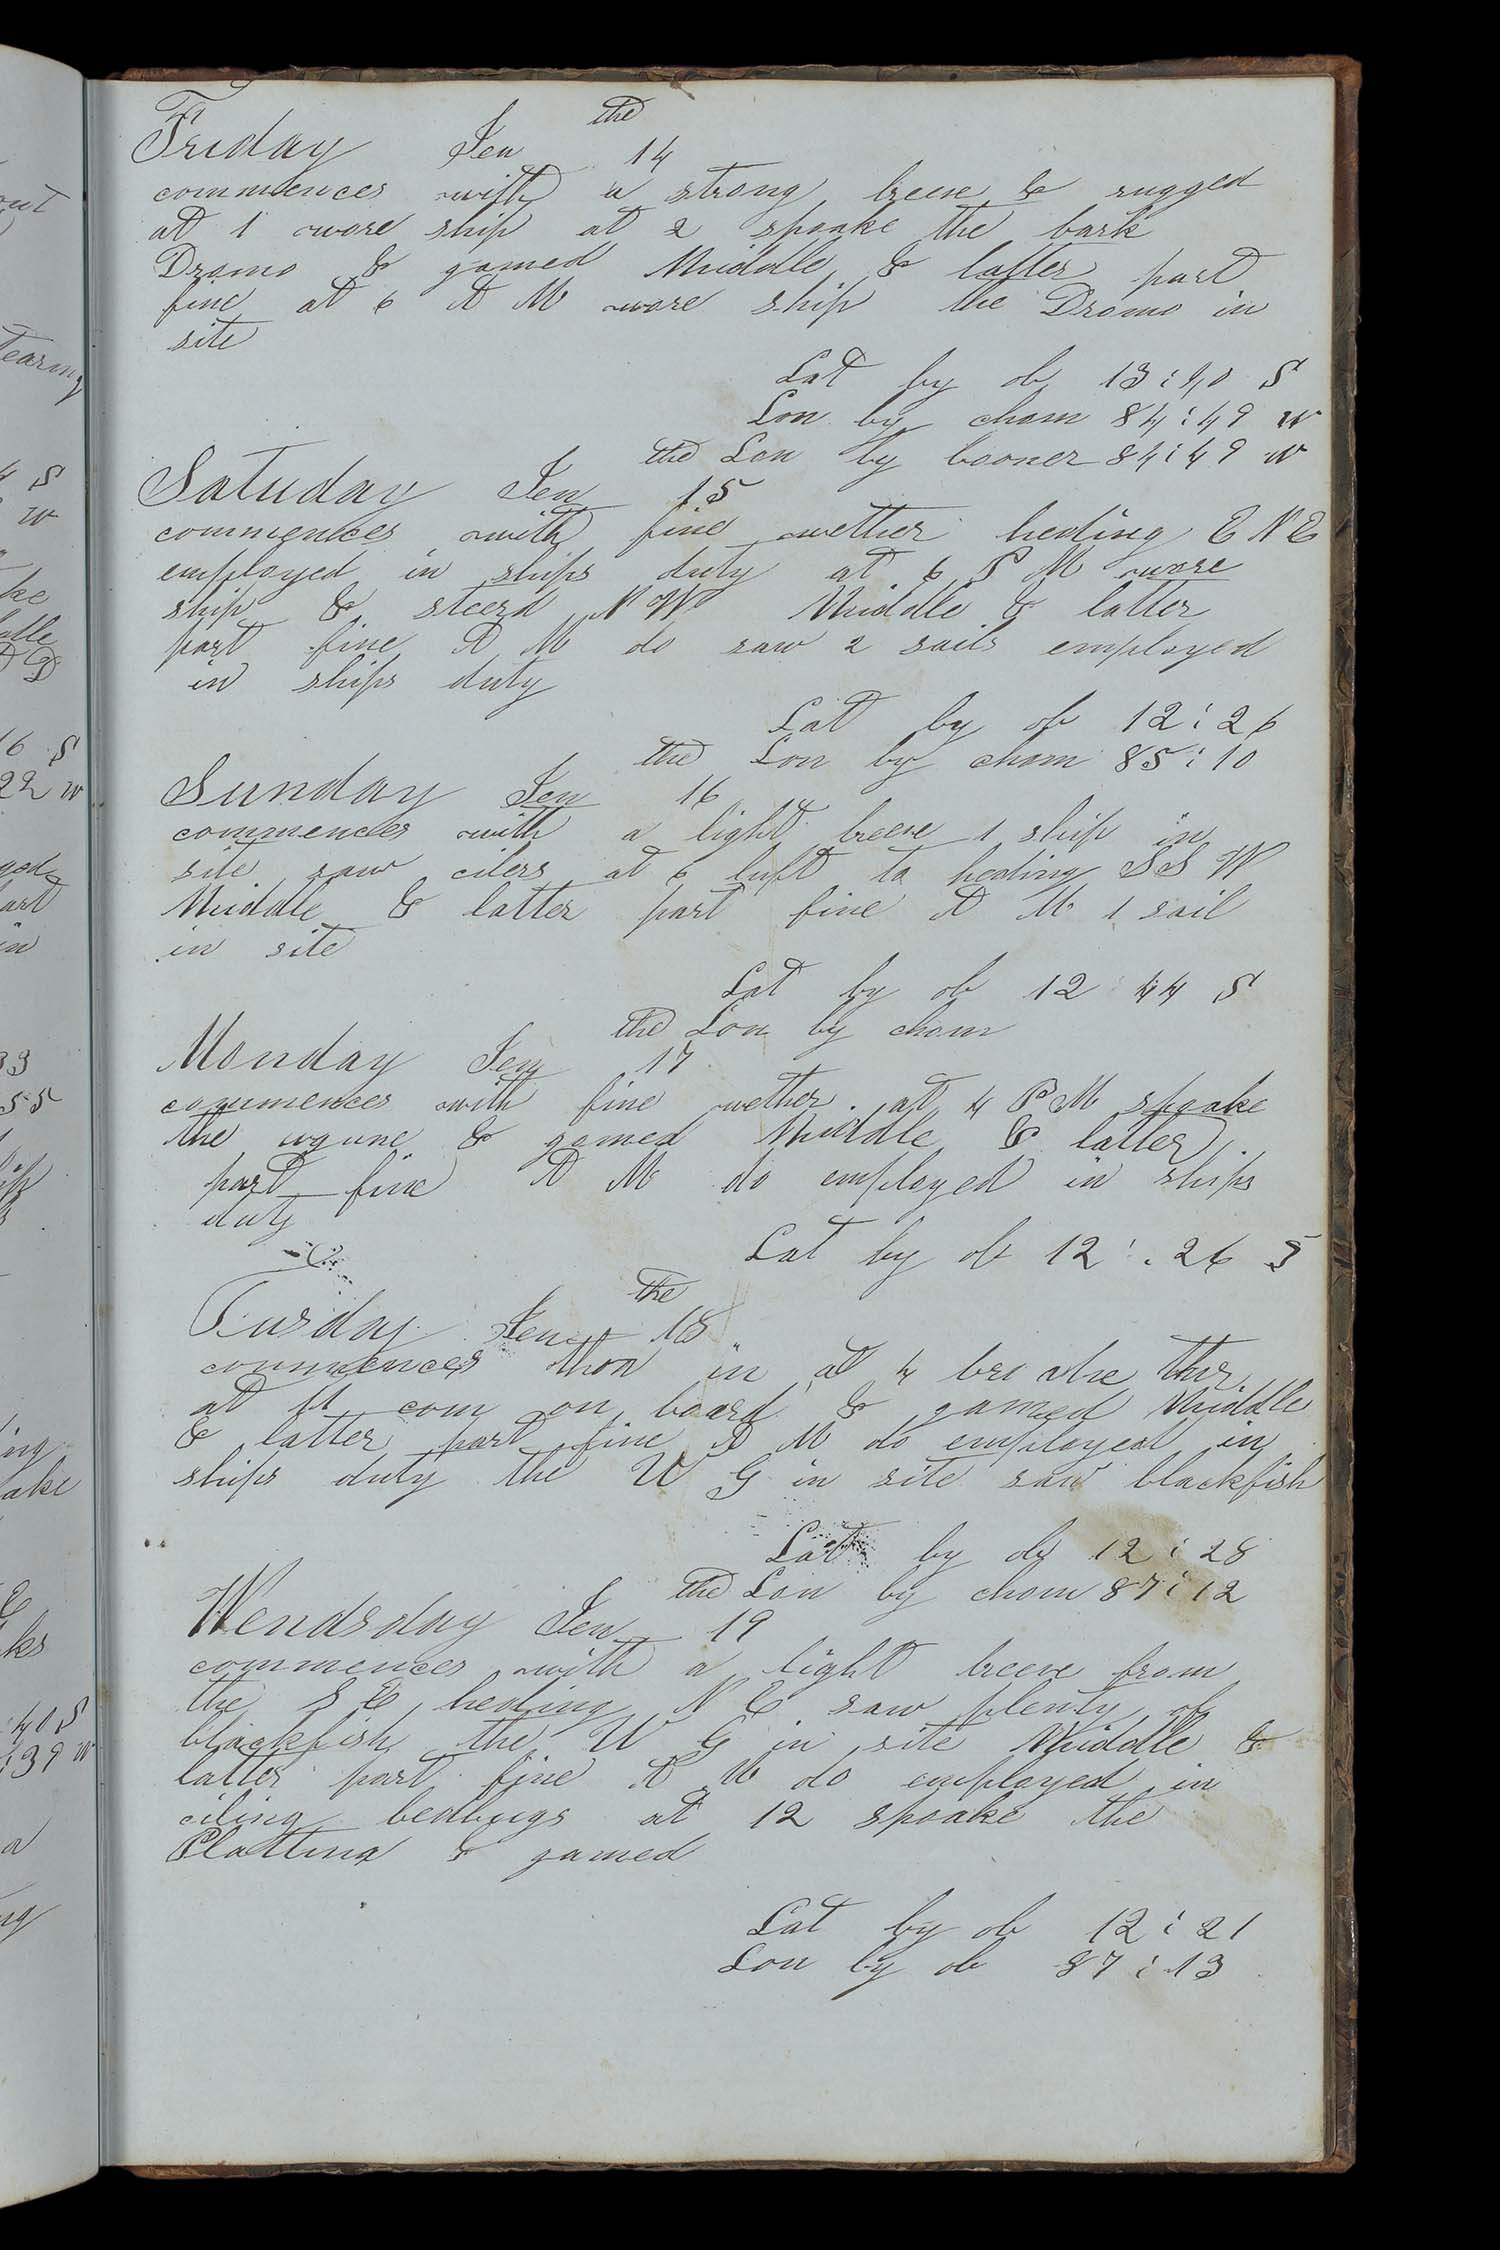 Friday Jen the 14
commences with a strong breeze & rugged
at 1 wore ship at 2 spoake the bark
Dromo & gamed Middle & latter part
fine at 6 A M wore ship the Dromo in
site
Lat by ob 13:40 S
Lon by chom 84:49 W
Lon by booner 84:49 W
Satuday Jen the 15
commences with fine wether heding E N E
employed in ships duty at 6 P M wore
ship & steerd N W Middle & latter
part fine A M do saw 2 sails employed
in ships duty
Lat by ob 12:26
Lon by chom 85:10
Sunday Jen the 16
commences with a light breeze 1 ship in
site saw cilers at 6 luft ta heding S S W
Middle & latter part fine A M 1 sail
in site
Lat by ob 12 44 S
Lon by chom
Monday Jen the 17
commences with fine wether. at 4 P M spoake
the & gamed Middle & latter
part fine A M do employed in ships
duty
Lat by ob 12:26 S
Tusday Jen the 18
commences in at 4
at 11 com on board & gamed Middle
& latter part fine A M do employed in
ships duty the W G in site saw blackfish
Lat by ob 12:28
Lon by chom 87:12
Wendsday Jen the 19
commences with a light breeze from
the S E heding N E saw plenty of
blackfish the W G in site Middle &
latter part fine A M do employed in
ciling bedbugs at 12 spoake the
Plattina & gamed
Lat by ob 12:21
Lon by ob 87:13